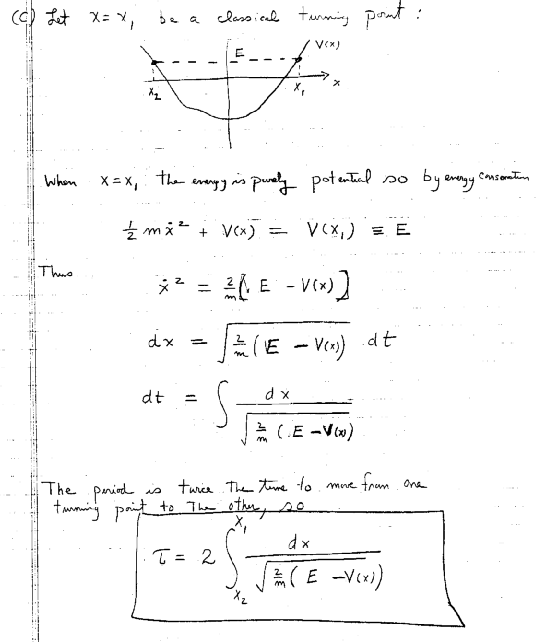 (c) Let x = x₁ be a classical turning point :
V(x)
E
x
x₂
x₁
When x = x₁ the energy is purely potential so by energy conservation
½ m ẋ² + V(x) = V(x₁) ≡ E
Thus
ẋ² = 2/m [ E - V(x) ]
dx = √(2/m (E - V(x))) dt
dt = ∫ dx / √(2/m (E - V(x)))
The period is twice the time to move from one
turning point to the other, so
τ = 2 ∫_{x₂}^{x₁} dx / √(2/m (E - V(x)))